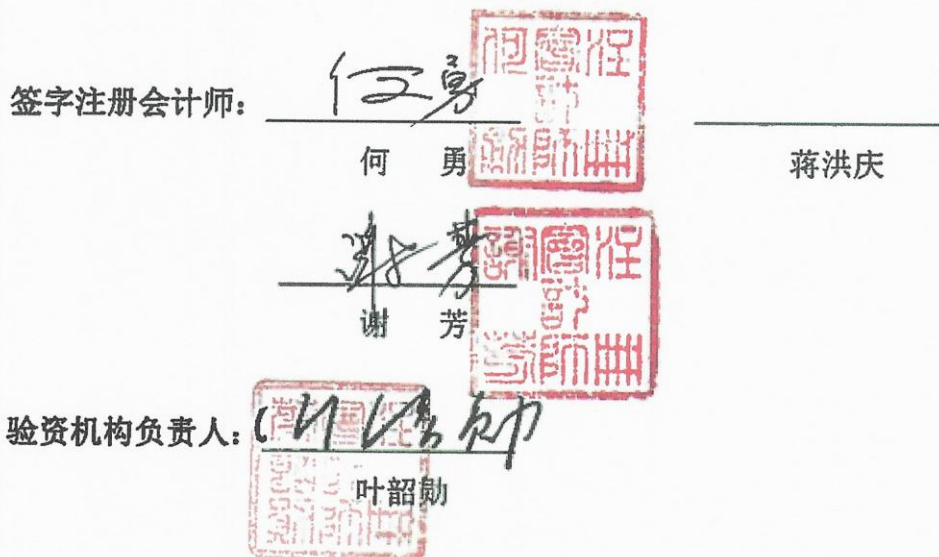 签字注册会计师： 何勇
何 勇 蒋洪庆
谢芳
谢 芳
验资机构负责人：
叶韶勋